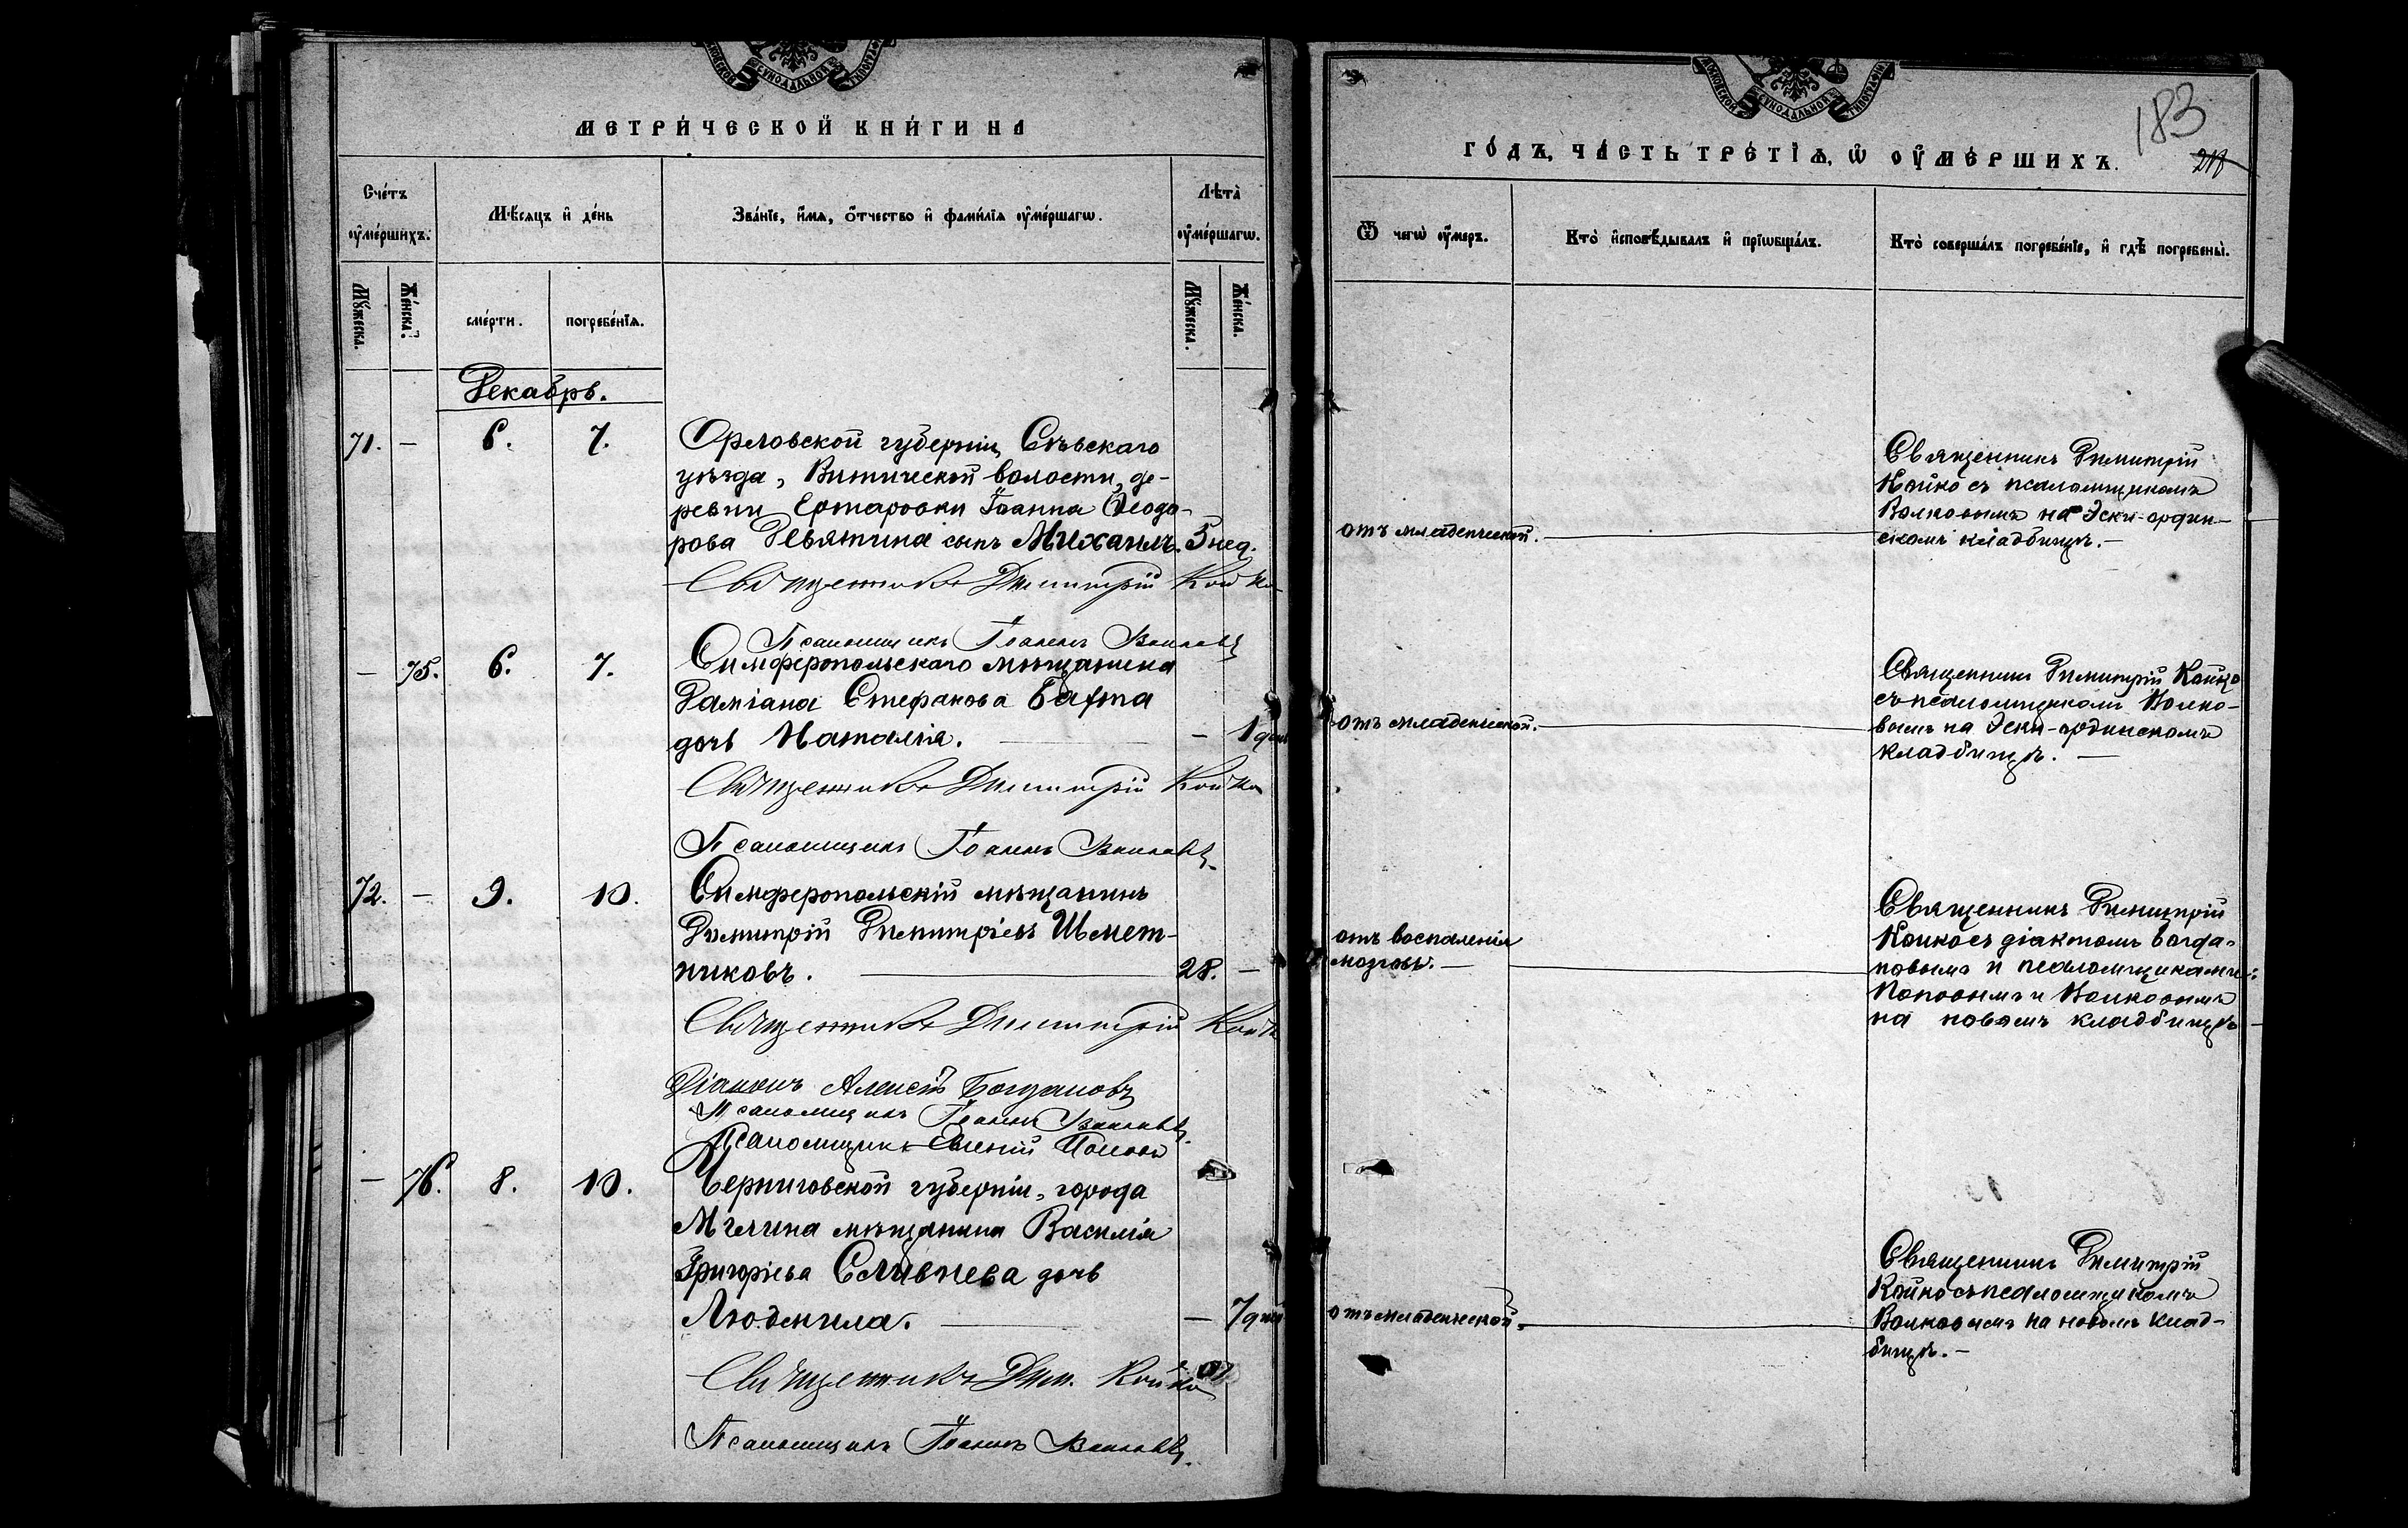 МОСКОВСКОЙ СѴНОДАЛЬНОЙ ТИПОГРАФІИ
МЕТРИ́ЧЕСКОЙ КНИ́ГИ НА
Сче́тъ ᲂу҆ме́ршихъ.
Мѣ́сяцъ и҆ де́нь
Зва́нїе, и҆́мя, ѻ҆́тчество и҆ фами́лїя ᲂу҆ме́ршагѡ.
Лѣ́та ᲂу҆ме́ршагѡ.
Мꙋ́жеска.
Же́нска.
сме́рти.
погребе́нїя.
Мꙋ́жеска.
Же́нска.
Декабрь.
71. — 6. 7. Орловской губерніи, Сѣвскаго
уѣзда, Витической волости, де-
ревни Іоанна Ѳеодо-
рова Девятина сынъ Михаилъ. 5 нед.
Священникъ Димитрій Койко
Псаломщикъ Іоаннъ Волковъ
— 75. 6. 7. Симферопольскаго мѣщанина
Даміана Стефанова Бахта
дочь Наталія. — 1 день
Священникъ Димитрій Койко
Псаломщикъ Іоаннъ Волковъ.
72. — 9. 10. Симферопольскій мѣщанинъ
Димитрій Димитріевъ Шмет-
никовъ. 28. —
Священникъ Димитрій Койко
Діаконъ Алексій Богдановъ
Псаломщикъ Іоаннъ Волковъ.
Псаломщикъ Евгеній Поповъ
— 76. 8. 10. Черниговской губерніи, города
Мглина мѣщанина Василія
Григорьева Сливнева дочь
Людмила. — 7 дней
Священникъ Дим. Койко
Псаломщикъ Іоаннъ Волковъ.
МОСКОВСКОЙ СѴНОДАЛЬНОЙ ТИПОГРАФІИ
183
ГО́ДЪ, ЧА́СТЬ ТРЕ́ТЇѦ, Ѡ҆ ОУ҆МЕ́РШИХЪ.
217
Ѿ чегѡ̀ ᲂу҆́меръ.
Кто̀ и҆сповѣ́дывалъ и҆ прїѡбща́лъ.
Кто̀ соверша́лъ погребе́нїе, и҆ гдѣ̀ погребены̀.
отъ младенческой.
Священникъ Димитрій
Койко съ псаломщикомъ
Волковымъ на Эски-ордин-
скомъ кладбищѣ. —
отъ младенческой.
Священникъ Димитрій Койко
съ псаломщикомъ Волко-
вымъ на Эски-ординскомъ
кладбищѣ. —
отъ воспаленія
мозговъ. —
Священникъ Димитрій
Койко съ діакономъ Богда-
новымъ и псаломщиками:
Поповымъ и Волковымъ
на новомъ кладбищѣ —
отъ младенческой.
Священникъ Димитрій
Койко съ псаломщикомъ
Волковымъ на новомъ клад-
бищѣ. —